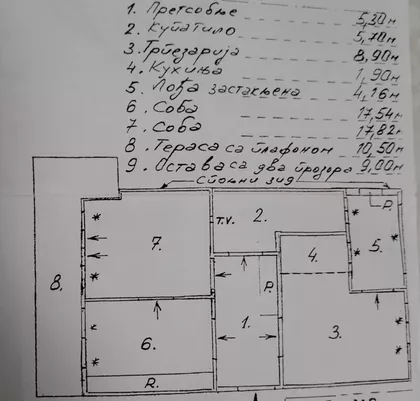 1. Претсобље 5,30м
2. Купатило 5,70м
3. Трпезарија 8,90м
4. Кухиња 1,90м
5. Лођа застакљена 4,16м
6. Соба 17,54м
7. Соба 17,82м
8. Тераса са плафоном 10,50м
9. Остава са два прозора 9,00м
Спољни зид
P.
T.V.
2.
7.
4.
5.
8.
P.
6.
1.
3.
R.